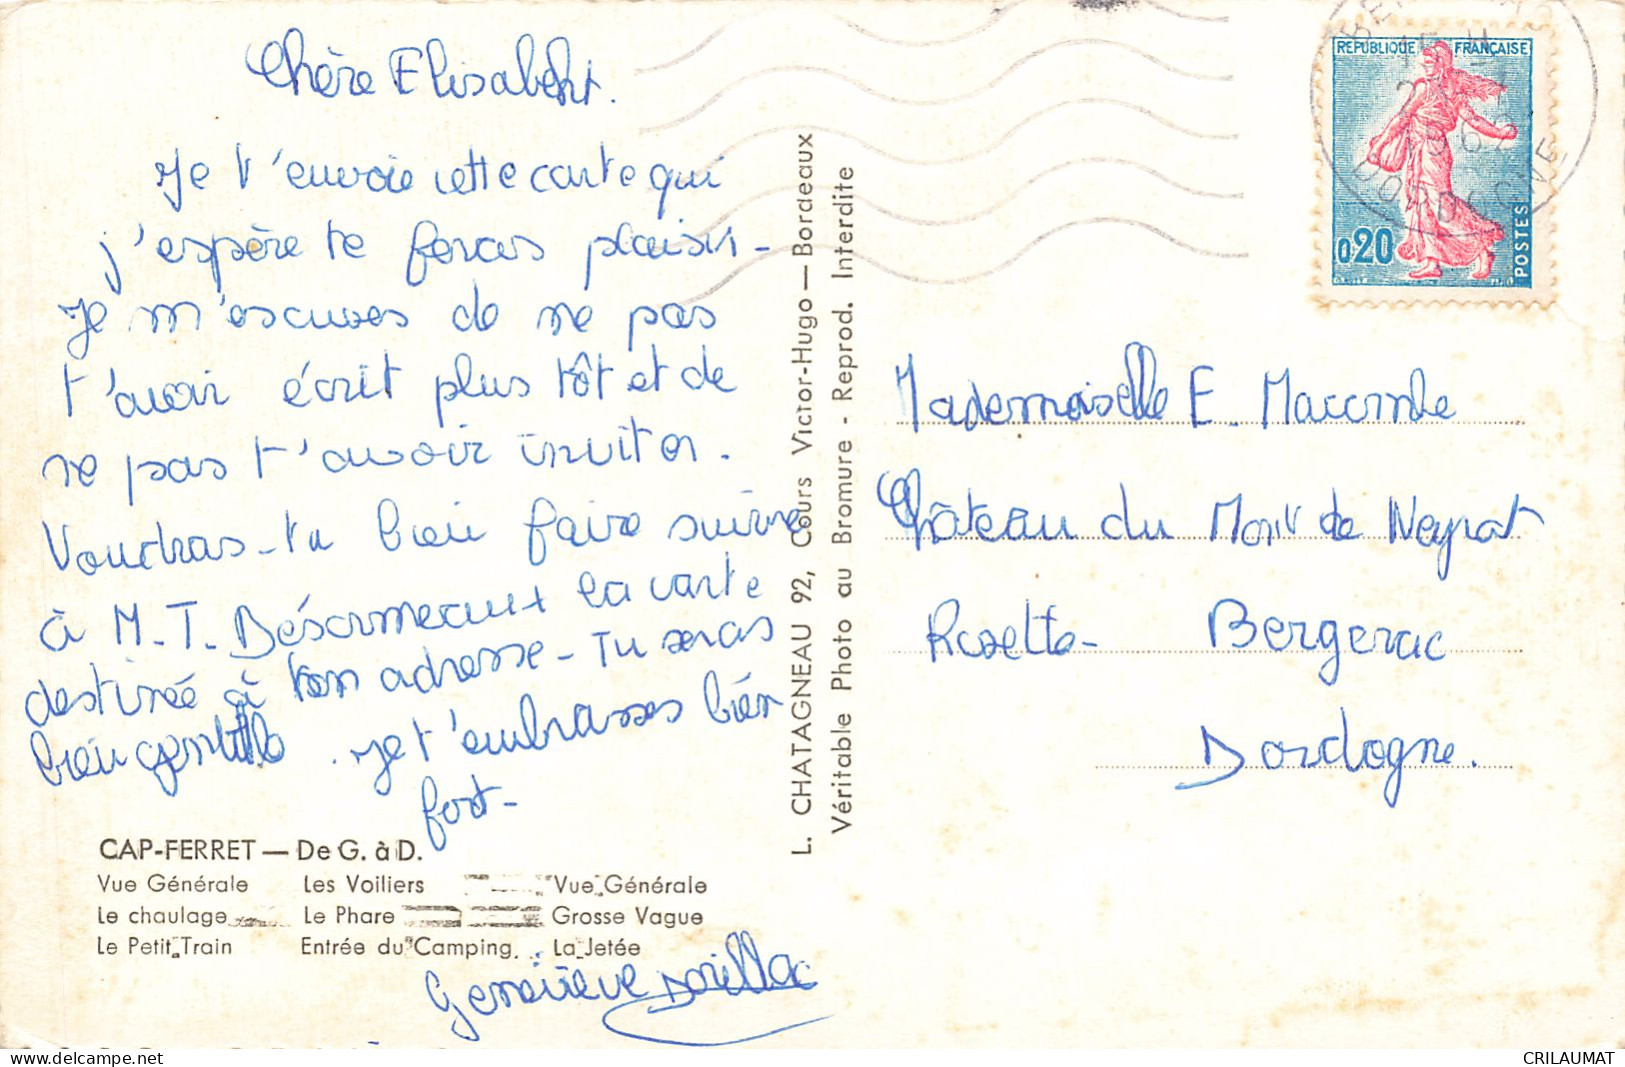 Chère Elisabeht.
Je t'envoie cette carte qui
j'espère te feras plaisir-
Je m'escuses de ne pas
t'avoir écrit plus tôt et de
ne pas t'avoir inviter.
Voudras-tu bien faire suivre
à M.T. Désormeaux la carte
destinée à ton adresse- Tu seras
bien gentille. Je t'embrasses bien
fort-
CAP-FERRET — De G. à D.
Vue Générale Les Voiliers Vue Générale
Le chaulage Le Phare Grosse Vague
Le Petit Train Entrée du Camping. La Jetée
Geneviève
L. CHATAGNEAU 92, Cours Victor-Hugo — Bordeaux
Véritable Photo au Bromure - Reprod. Interdite
REPUBLIQUE FRANÇAISE
0,20
POSTES
DORDOGNE
Mademoiselle E. Macombe
Château du Mont de Neyrat
Rosette- Bergerac
Dordogne.
CRILAUMAT